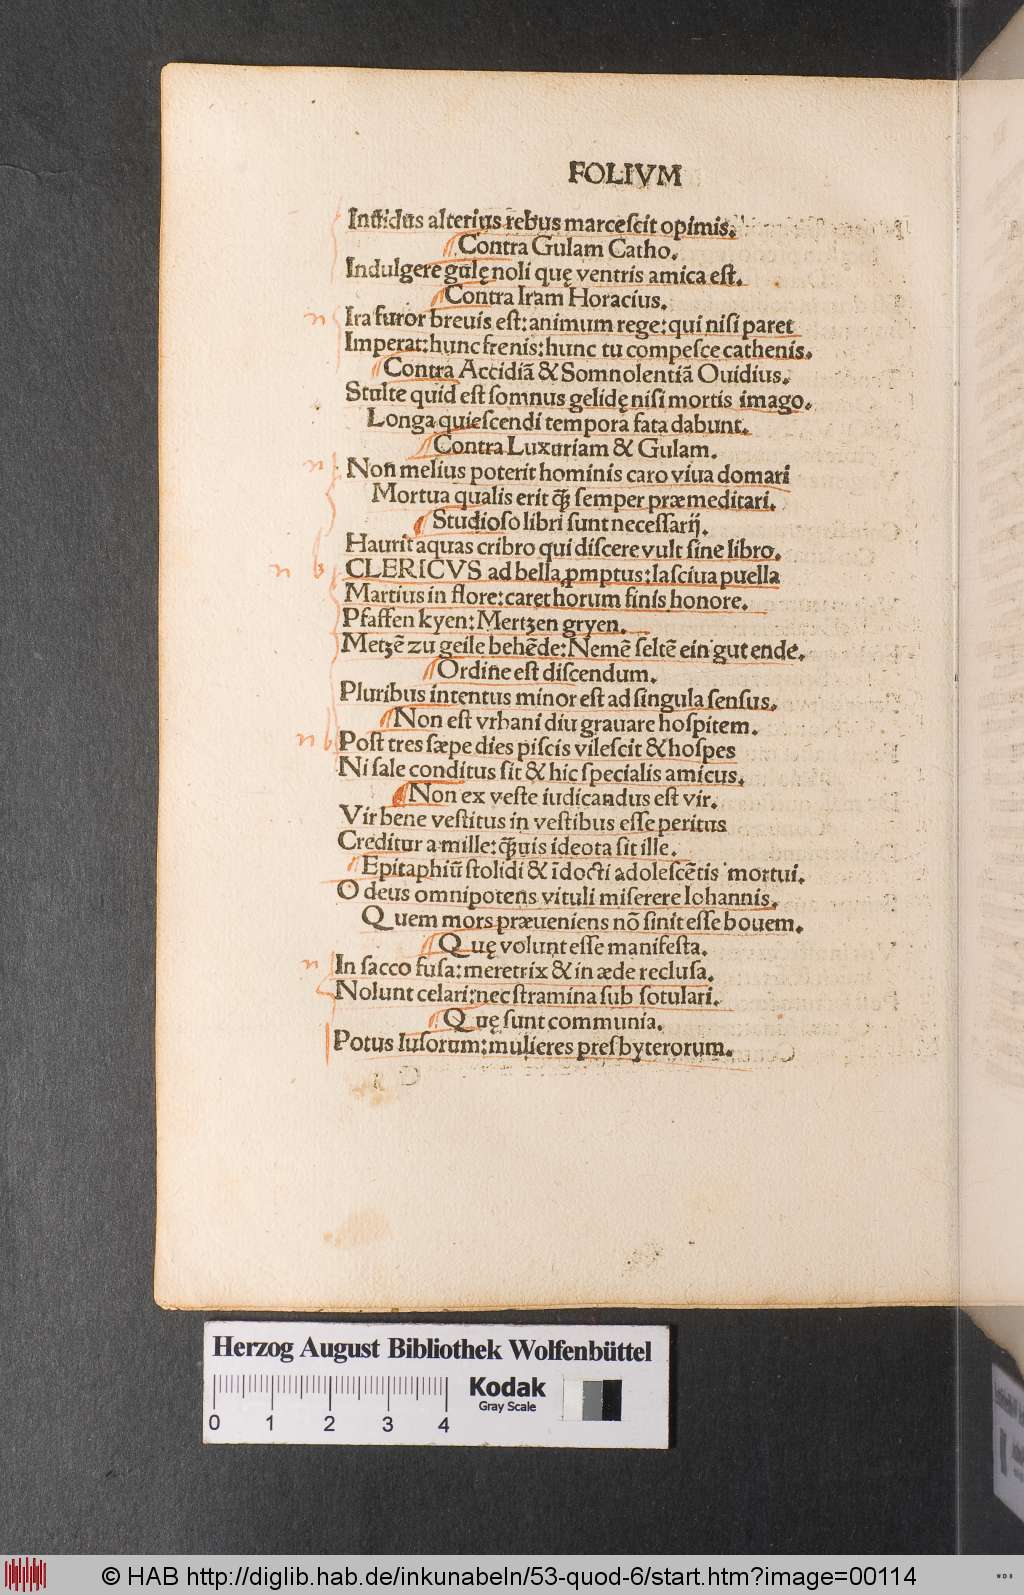 FOLIVM
Inſtidus alterius rebus marceſcit opimis.
Contra Gulam Catho.
Indulgere gulę noli quę ventris amica eſt.
Contra Iram Horacius.
Ira furor breuis eſt: animum rege: qui niſi paret
Imperat: hunc frenis: hunc tu compeſce cathenis.
Contra Accidiā & Somnolentiā Ouidius.
Stulte quid eſt ſomnus gelidę niſi mortis imago.
Longa quieſcendi tempora fata dabunt.
Contra Luxuriam & Gulam.
Non melius poterit hominis caro viua domari
Mortua qualis erit q̄ꝫ ſemper præmeditari.
Studioſo libri ſunt neceſſarij.
Haurit aquas cribro qui diſcere vult ſine libro.
n b CLERICVS ad bella ꝓmptus: laſciua puella
Martius in flore: caret horum finis honore.
Pfaffen kyen: Mertzen gryen.
Metzē zu geile behēde: Nemē ſeltē ein gut ende.
Ordine eſt diſcendum.
Pluribus intentus minor eſt ad ſingula ſenſus.
Non eſt vrbani diu grauare hoſpitem.
Poſt tres ſæpe dies piſcis vileſcit & hoſpes
Ni ſale conditus ſit & hic ſpecialis amicus.
Non ex veſte iudicandus eſt vir.
Vir bene veſtitus in veſtibus eſſe peritus
Creditur a mille: q̄ꝫuis ideota ſit ille.
Epitaphiū ſtolidi & īdocti adoleſcētis mortui.
O deus omnipotens vituli miſerere Iohannis.
Quem mors præueniens nō ſinit eſſe bouem.
Quę volunt eſſe manifeſta.
n In ſacco fuſa: meretrix & in æde recluſa.
Nolunt celari: nec ſtramina ſub ſotulari.
Quę ſunt communia.
Potus luſorum: mulieres preſbyterorum.
Herzog August Bibliothek Wolfenbüttel
0 1 2 3 4
Kodak
Gray Scale
© HAB http://diglib.hab.de/inkunabeln/53-quod-6/start.htm?image=00114